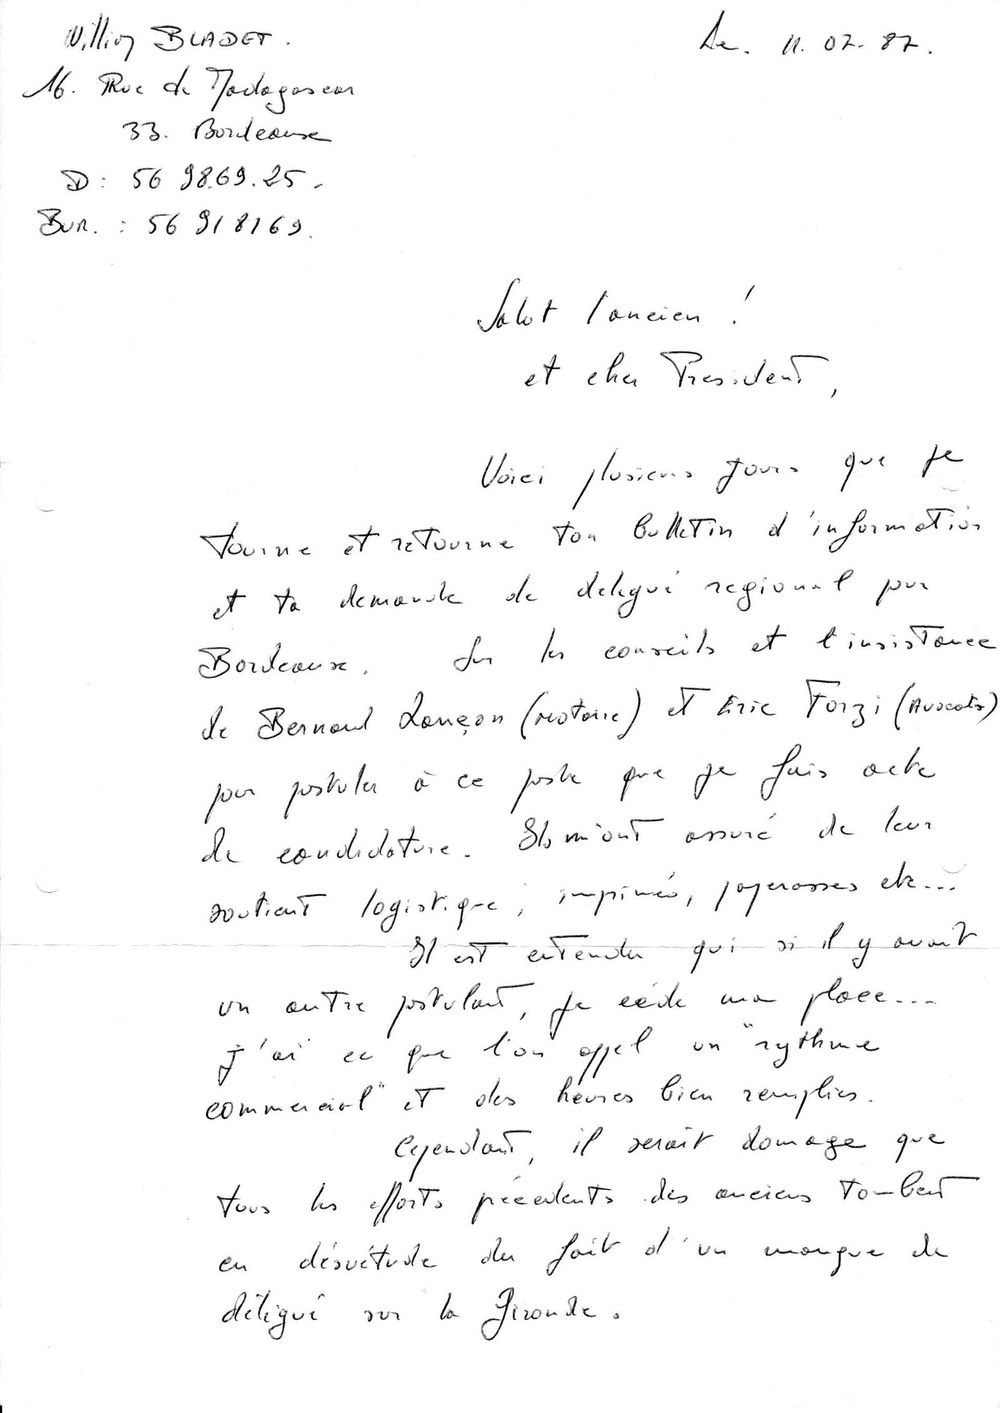 William BLADET.
Le. 11. 02. 87.
16. Rue de Madagascar
33. Bordeaux
D : 56 98.69.25.
Bur. : 56 918169.
Salut l'ancien !
et cher President,
Voici plusieurs jours que je
tourne et retourne ton bulletin d'information
et ta demande de delegué regional pour
Bordeaux. Sur les conseils et l'insistance
de Bernard Lançon (notaire) et Eric Forzi (Avocats)
pour postuler à ce poste que je fais acte
de candidature. Ils m'ont assuré de leur
soutient logistique, imprimés, paperasses etc...
Il est entendu qui si il y avait
un autre postulant, je cède ma place...
j'ai ce que l'on appel un "rythme
commercial" et des heures bien remplies.
Cependant, il serait domage que
tous les efforts précedents des anciens tombent
en désuétude du fait d'un manque de
délégué sur la Gironde.